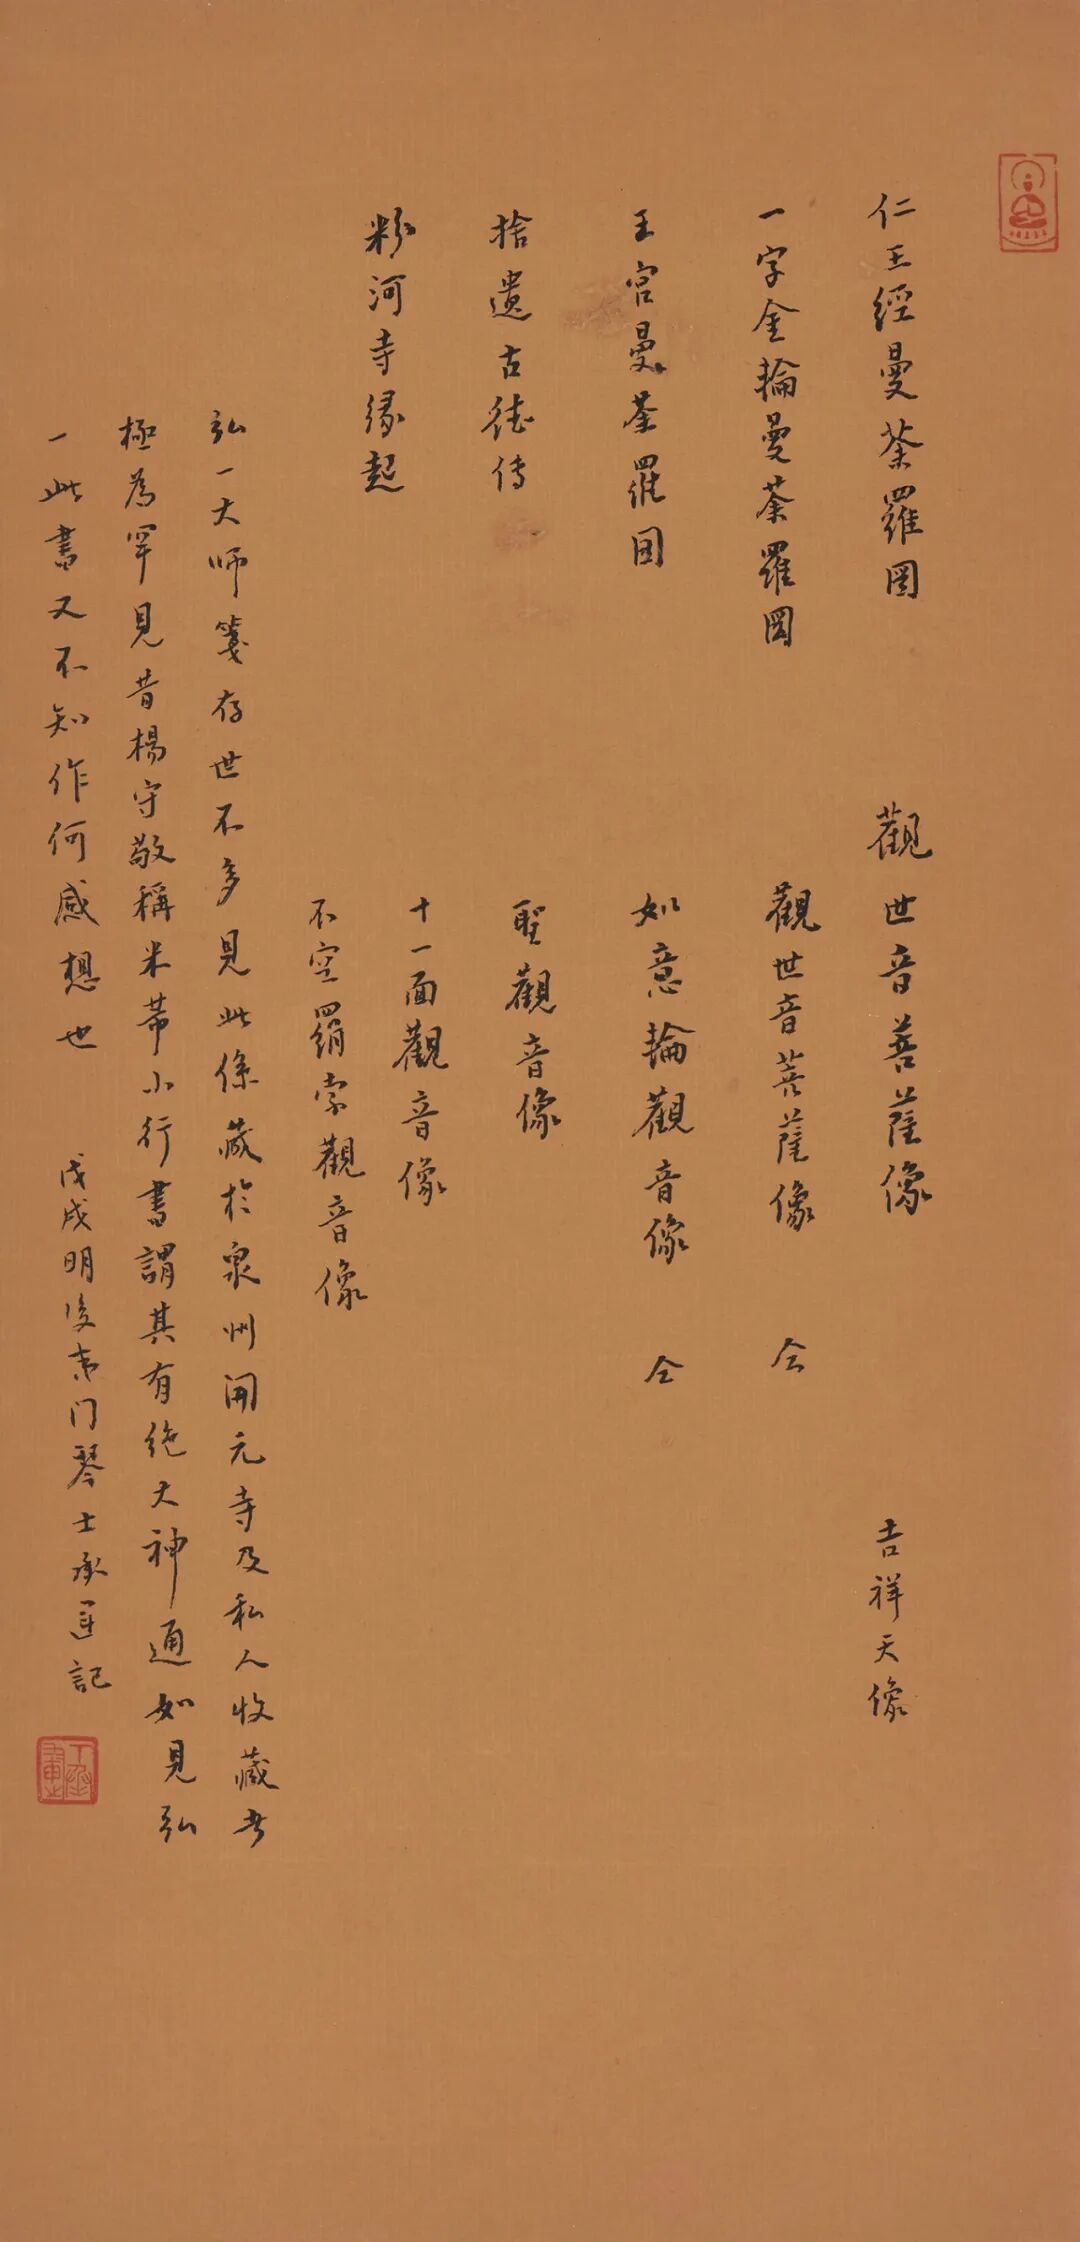 仁王經曼荼羅图
觀世音菩薩像
吉祥天像
一字金輪曼荼羅图
觀世音菩薩像 仝
王宮曼荼羅图
如意輪觀音像 仝
捨遺古德傳
聖觀音像
粉河寺缘起
十一面觀音像
不空羂索觀音像
弘一大师箋存世不多見此係藏於泉州開元寺及私人收藏者
極為罕見昔楊守敬稱米芾小行書謂其有绝大神通如見弘
一此書又不知作何感想也 戊戌明後 门琴士承 記